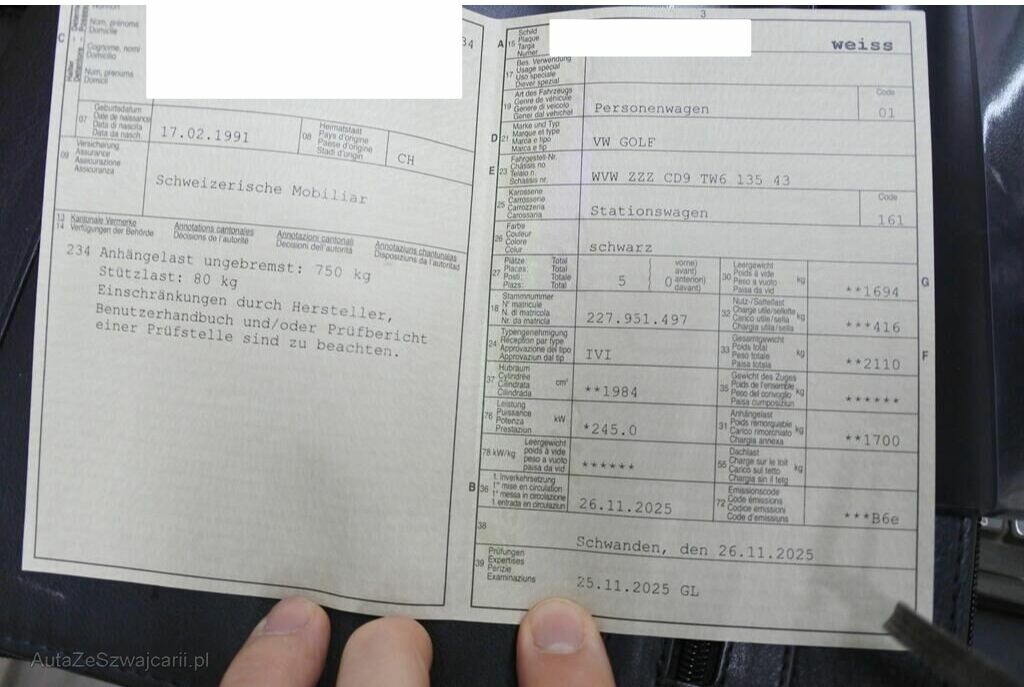 C
Nom, prénoms
Domicile
Cognome, nomi
Domicilio
Num, prenums
Domicil
34
07 Geburtsdatum
Date de naissance
Data di nascita
Data da nasch.
17.02.1991
08 Heimatstaat
Pays d'origine
Paese d'origine
Stadi d'origin
CH
09 Versicherung
Assurance
Assicurazione
Assicuranza
Schweizerische Mobiliar
13 Kantonale Vermerke Annotations cantonales Annotazioni cantonali Annotaziuns chantunalas
14 Verfügungen der Behörde Décisions de l'autorité Decisioni dell'autorità Disposiziuns da l'autoritad
234 Anhängelast ungebremst: 750 kg
Stützlast: 80 kg
Einschränkungen durch Hersteller,
Benutzerhandbuch und/oder Prüfbericht
einer Prüfstelle sind zu beachten.
3
A 15 Schild
Plaque
Targa
Numer
weiss
17 Bes. Verwendung
Usage spécial
Uso speciale
Diever spezial
19 Art des Fahrzeugs
Genre de véhicule
Genere di veicolo
Gener dal vehichel
Personenwagen
Code
01
D 21 Marke und Typ
Marque et type
Marca e tipo
Marca e tip
VW GOLF
E 23 Fahrgestell-Nr.
Châssis no
Telaio n.
Schassis nr.
WVW ZZZ CD9 TW6 135 43
25 Karosserie
Carrosserie
Carrozzeria
Carossaria
Stationswagen
Code
161
26 Farbe
Couleur
Colore
Colur
schwarz
27 Plätze: Total
Places: Total
Posti: Totale
Piazs: Total
5 ( 0
vorne)
avant)
anteriori)
davant)
30 Leergewicht
Poids à vide
Peso a vuoto
Paisa da vid
kg
**1694
G
18 Stammnummer
N° matricule
N. di matricola
Nr. da matricla
227.951.497
32 Nutz-/Sattellast
Charge utile/sellette
Carico utile/sella
Chargia utila/sella
kg
***416
24 Typengenehmigung
Réception par type
Approvazione del tipo
Approvaziun dal tip
IVI
33 Gesamtgewicht
Poids total
Peso totale
Paisa totala
kg
**2110
F
37 Hubraum
Cylindrée
Cilindrata
Cilindrada
cm³
**1984
35 Gewicht des Zuges
Poids de l'ensemble
Peso del convoglio
Paisa cumposiziun
kg
******
76 Leistung
Puissance
Potenza
Prestaziun
kW
*245.0
31 Anhängelast
Poids remorquable
Carico rimorchiato
Chargia annexa
kg
**1700
78 kW/kg
Leergewicht
poids à vide
peso a vuoto
paisa da vid
******
55 Dachlast
Charge sur le toit
Carico sul tetto
Chargia sin il tetg
kg
B 36 1. Inverkehrsetzung
1re mise en circulation
1a messa in circolazione
1. entrada en circulaziun
26.11.2025
72 Emissionscode
Code émissions
Codice emissioni
Code d'emissiuns
***B6e
38
Schwanden, den 26.11.2025
39 Prüfungen
Expertises
Perizie
Examinaziuns
25.11.2025 GL
AutaZeSzwajcarii.pl